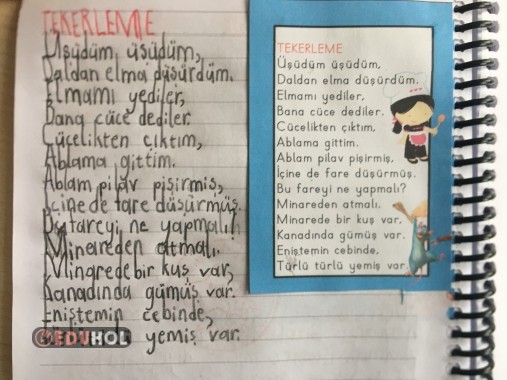 TEKERLEME
Üşüdüm üşüdüm,
Daldan elma düşürdüm.
Elmamı yediler,
Bana cüce dediler.
Cücelikten çıktım,
Ablama gittim.
Ablam pilav pişirmiş,
İçine de fare düşürmüş.
Bu fareyi ne yapmalı?
Minareden atmalı.
Minarede bir kuş var,
Kanadında gümüş var.
Eniştemin cebinde,
yemiş var.
EDUHOL
TEKERLEME
Üşüdüm üşüdüm,
Daldan elma düşürdüm.
Elmamı yediler,
Bana cüce dediler.
Cücelikten çıktım,
Ablama gittim.
Ablam pilav pişirmiş,
İçine de fare düşürmüş.
Bu fareyi ne yapmalı?
Minareden atmalı.
Minarede bir kuş var,
Kanadında gümüş var.
Eniştemin cebinde,
Türlü türlü yemiş var.